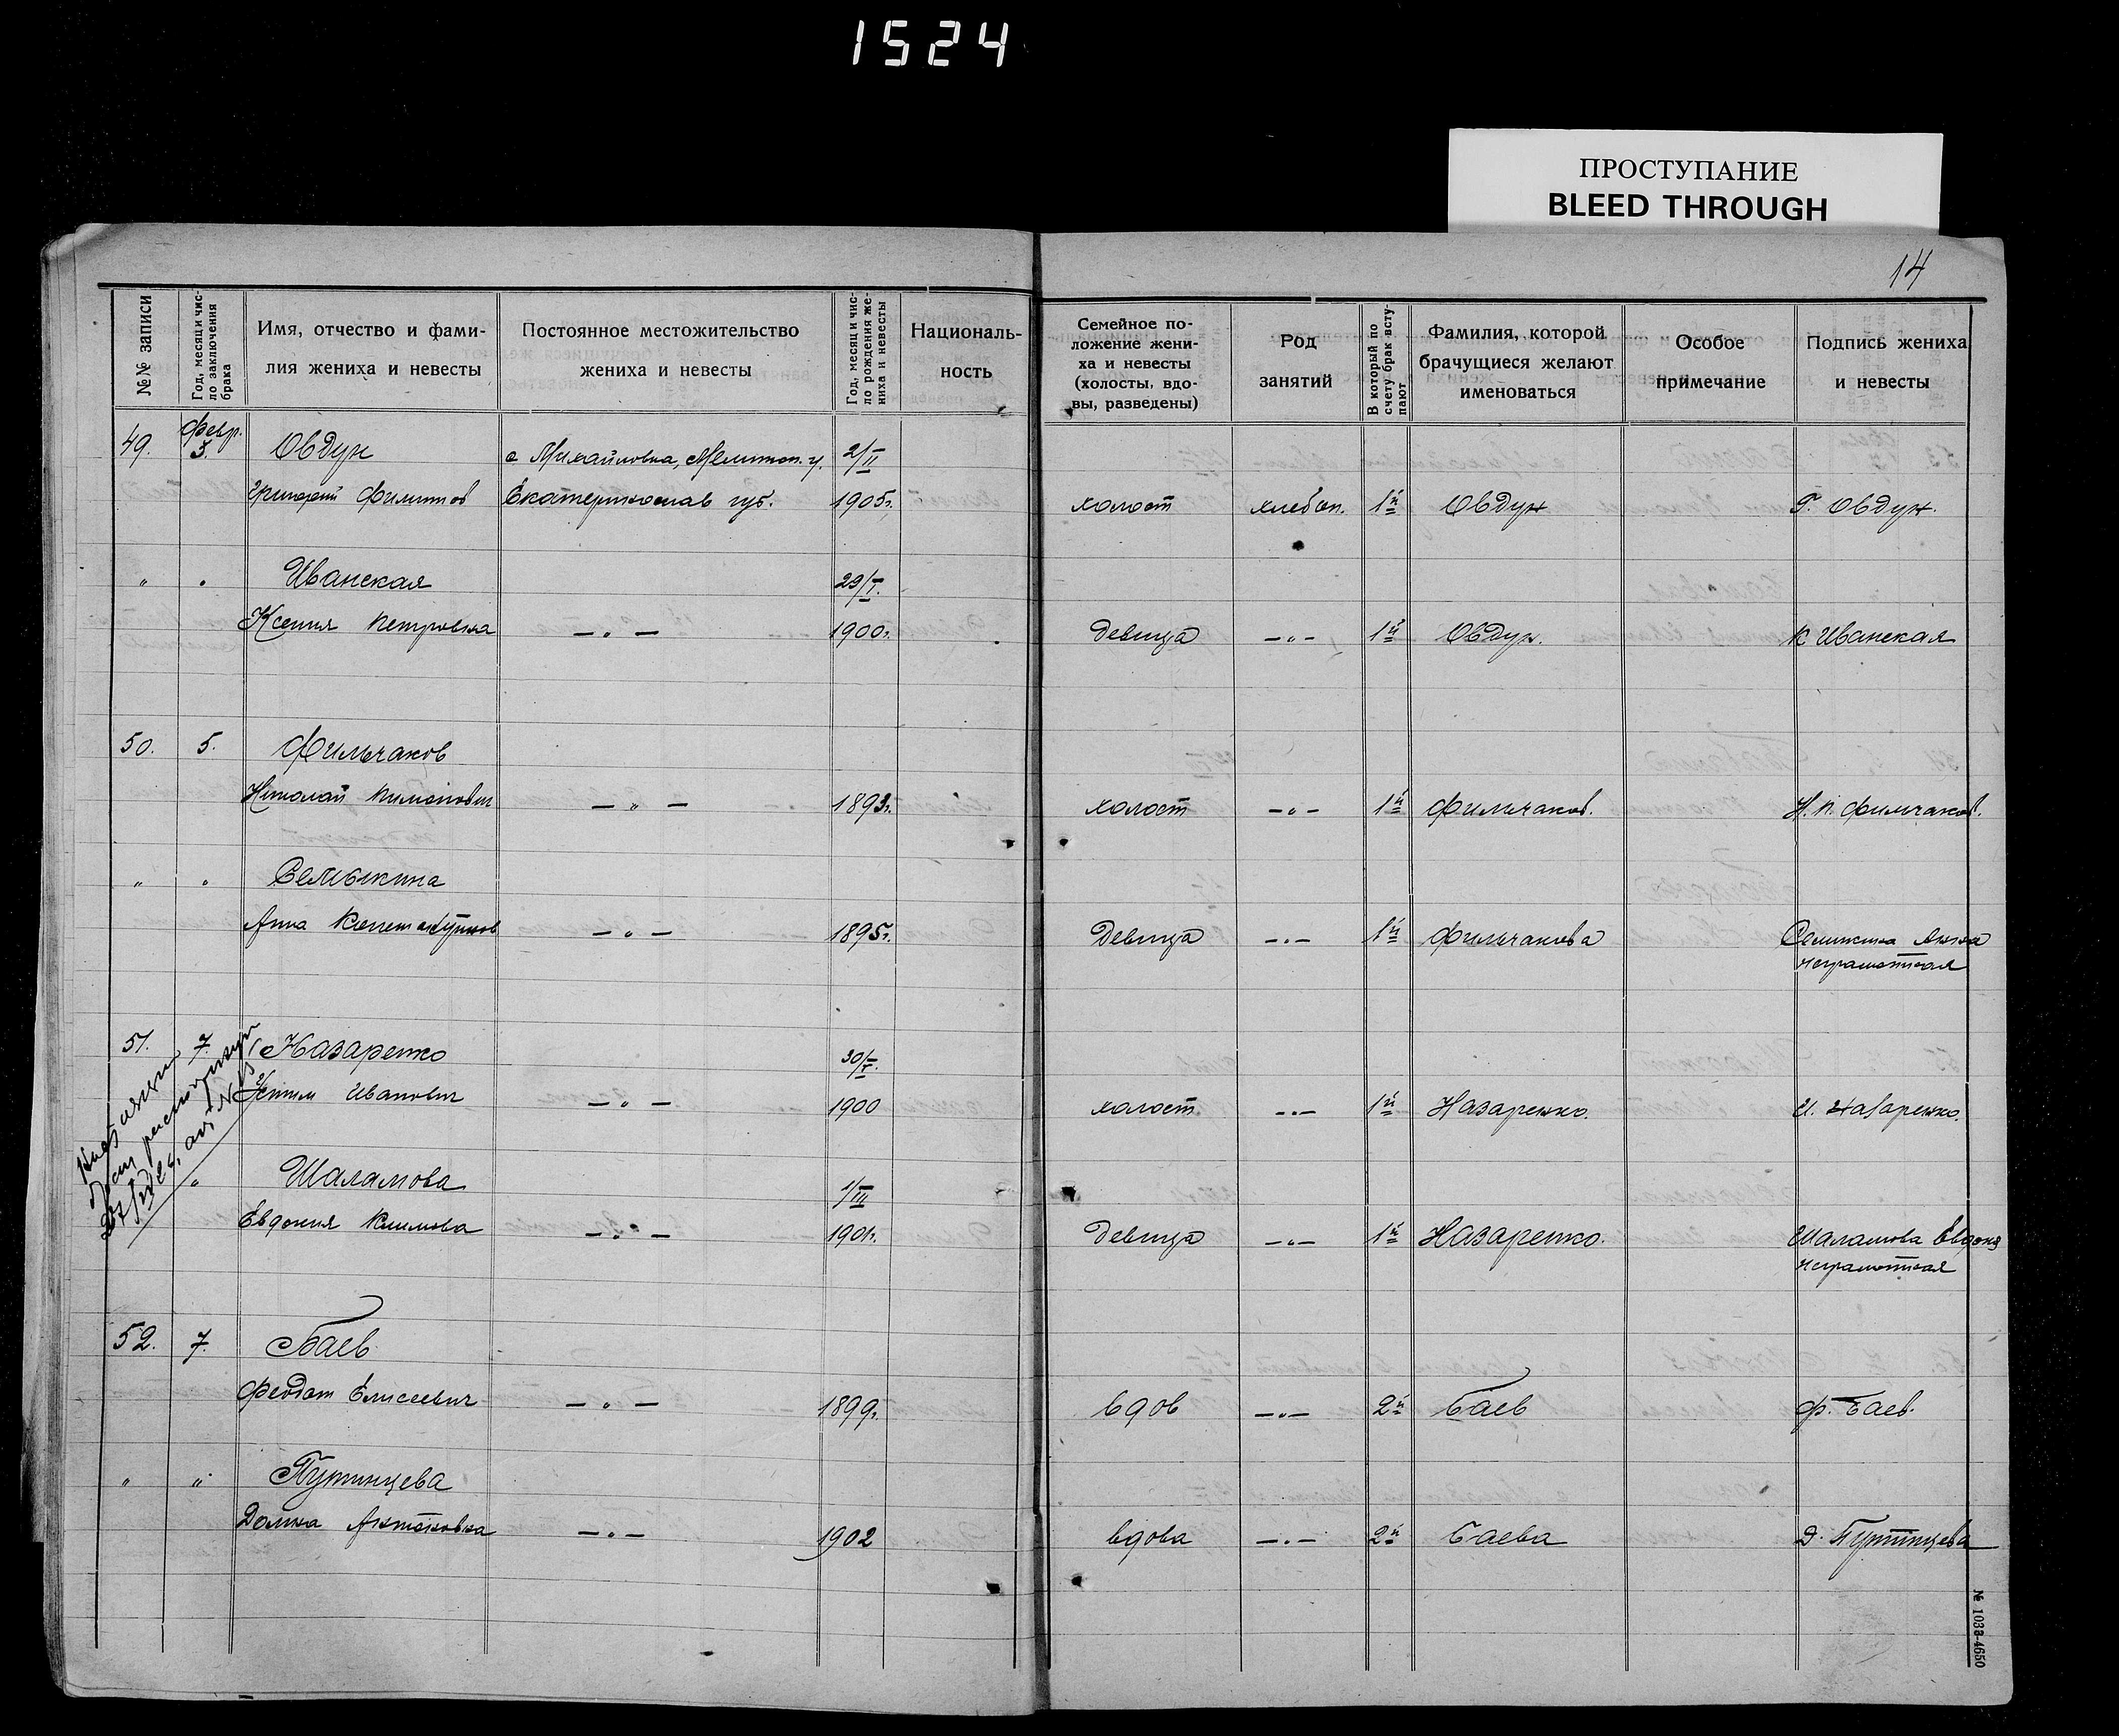 1524
ПРОСТУПАНИЕ
BLEED THROUGH
14
№№ записи
Год, месяц и чис-
ло заключения
брака
Имя, отчество и фами-
лия жениха и невесты
Постоянное местожительство
жениха и невесты
Год, месяц и чис-
ло рождения же-
ниха и невесты
Националь-
ность
Семейное по-
ложение жени-
ха и невесты
(холосты, вдо-
вы, разведены)
Род
занятий
В который по
счету брак всту-
пают
Фамилия, которой
брачущиеся желают
именоваться
Особое
примечание
Подпись жениха
и невесты
49. Февр. 3. Овдун с Михайловка, Мелитоп. у. 2/II
Григорий Филиппов Екатеринослав губ. 1905г. холост хлебоп. 1й Овдун Г. Овдун.
" " Иванская 29/I.
Ксения Петровна — " — 1900г. девица — " — 1й Овдун. К Иванская
50. 5. Фильчаков
Николай Пимонович — " — 1893г. холост — " — 1й Фильчаков. Н. П. Фильчаков.
" " Семыкина
Анна — " — 1895г. девица — " — 1й Фильчакова Семыкина Анна
неграмотная
51. 7. Назаренко 30/I.
Иванович — " — 1900 холост — " — 1й Назаренко. И. Назаренко.
" Шаламова 1/III
Евдокия Климова — " — 1901г. девица — " — 1й Назаренко. Шаламова Евдокия
неграмотная
52. 7. Баев
Феодот Елисеевич — " — 1899г. вдов — " — 2й Баев Ф. Баев.
" " Путинцева
Домна Антоновна — " — 1902 вдова — " — 2й Баева Д. Путинцева
№ 1033-4650